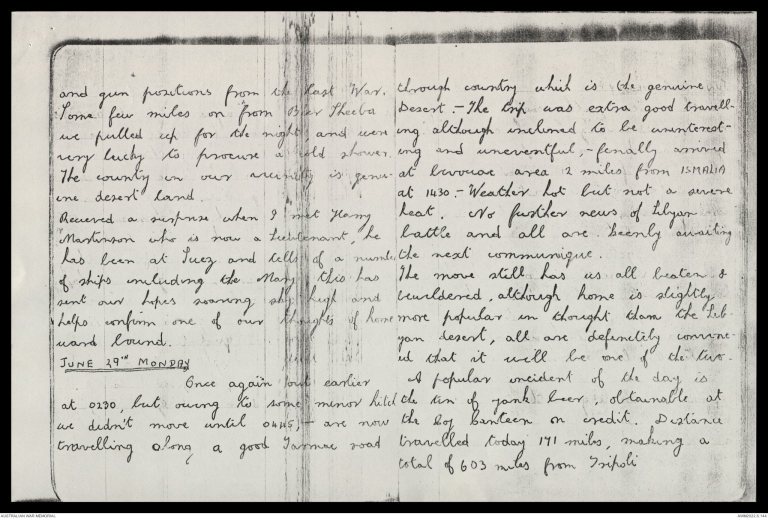 and gun positions from the last War.
Some few miles on from Beer Sheeba
we pulled up for the night and were
very lucky to procure a cold shower.
The country in our vicinity is genu-
ine desert land.
Recieved a surprise when I met Harry
Martinson who is now a Lieutenant, he
has been at Suez and tells of a number
of ships including the Mary this has
sent our hopes soaring sky high and
helps confirm one of our thoughts of home
ward bound.
JUNE 29TH MONDAY
Once again out earlier
at 0230, but owing to some minor hitch
we didn't move until 0445, - are now
travelling along a good Tarmac road
through country which is the genuine
Desert. - The trip was extra good travell-
ing although inclined to be uninterest-
ing and uneventful, - finally arrived
at bivouac area 2 miles from ISMALIA
at 1430. - Weather hot but not a severe
heat. No further news of Libyan
battle and all are keenly awaiting
the next communique.
The move still has us all beaten &
bewildered, although home is slightly
more popular in thought than the Lib-
yan desert, all are definitely convinc-
ed that it will be one of the two.
A popular incident of the day is
the tin of yank beer, obtainable at
the Coy Canteen on credit. Distance
travelled today 171 miles, making a
total of 603 miles from Tripoli
AUSTRALIAN WAR MEMORIAL